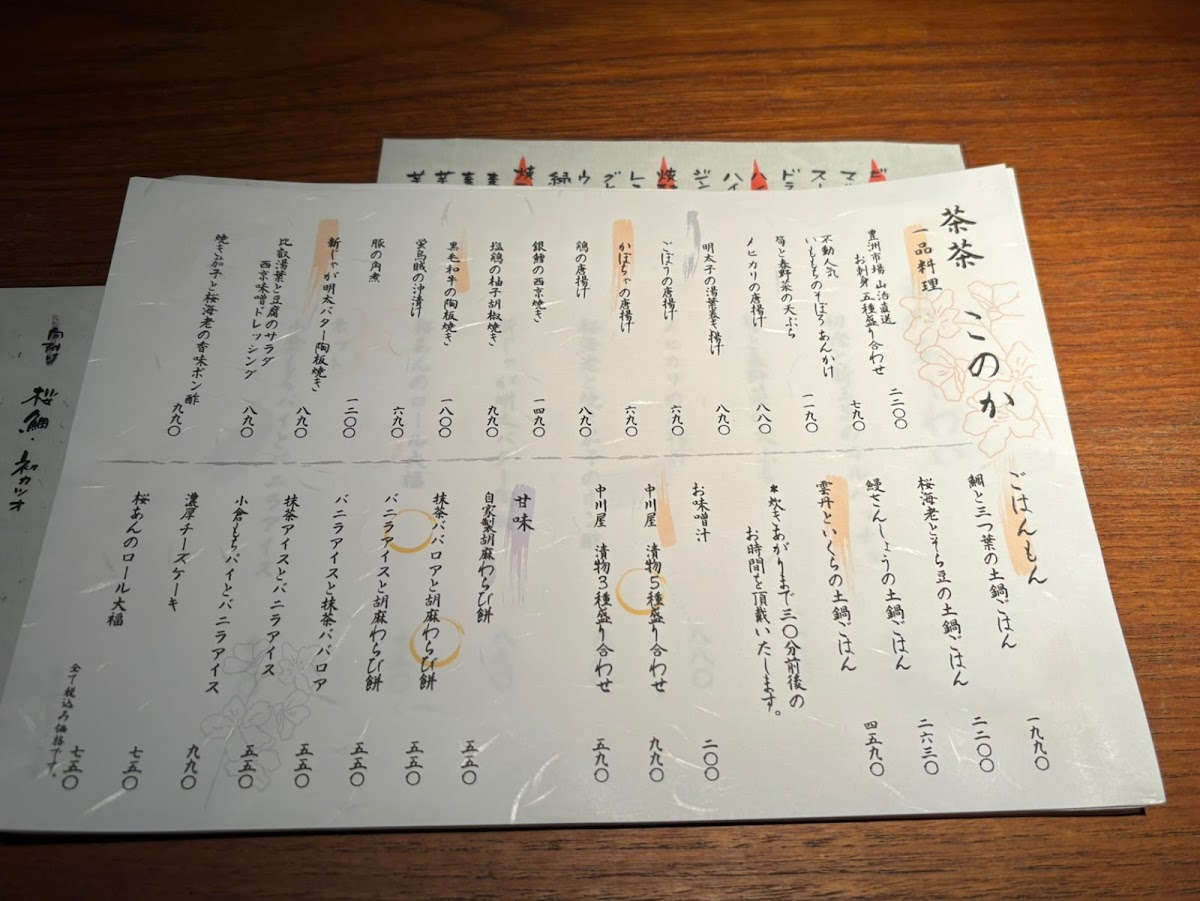 茶茶 このか
一品料理
豊洲市場 山治直送
お刺身 五種盛り合わせ 二二〇〇
不動人気
いももちのそぼろあんかけ 七九〇
筍と春野菜の天ぷら 一一九〇
メヒカリの唐揚げ 八八〇
明太子の湯葉巻き揚げ 八九〇
ごぼうの唐揚げ 六九〇
かぼちゃの唐揚げ 六九〇
鶏の唐揚げ 八九〇
銀鱈の西京焼き 一四九〇
塩鶏の柚子胡椒焼き 九九〇
黒毛和牛の陶板焼き 一八〇〇
蛍烏賊の沖漬け 六九〇
豚の角煮 一二〇〇
新じゃが明太バター陶板焼き 八九〇
比叡湯葉と豆腐のサラダ
西京味噌ドレッシング 八九〇
焼き茄子と桜海老の香味ポン酢 九九〇
ごはんもん
鯛と三つ葉の土鍋ごはん 一九九〇
桜海老とそら豆の土鍋ごはん 二二〇〇
鰻さんしょうの土鍋ごはん 二六三〇
雲丹といくらの土鍋ごはん 四五九〇
*炊きあがりまで三〇分前後の
お時間を頂戴いたします。
お味噌汁 二〇〇
中川屋 漬物5種盛り合わせ 九九〇
中川屋 漬物3種盛り合わせ 五九〇
甘味
自家製胡麻わらび餅 五五〇
抹茶ババロアと胡麻わらび餅 五五〇
バニラアイスと胡麻わらび餅 五五〇
バニラアイスと抹茶ババロア 五五〇
抹茶アイスとバニラアイス 五五〇
小倉もちパイとバニラアイス 九九〇
濃厚チーズケーキ 七五〇
桜あんのロール大福 七五〇
全て税込み価格です。
桜鯛・初カツオ